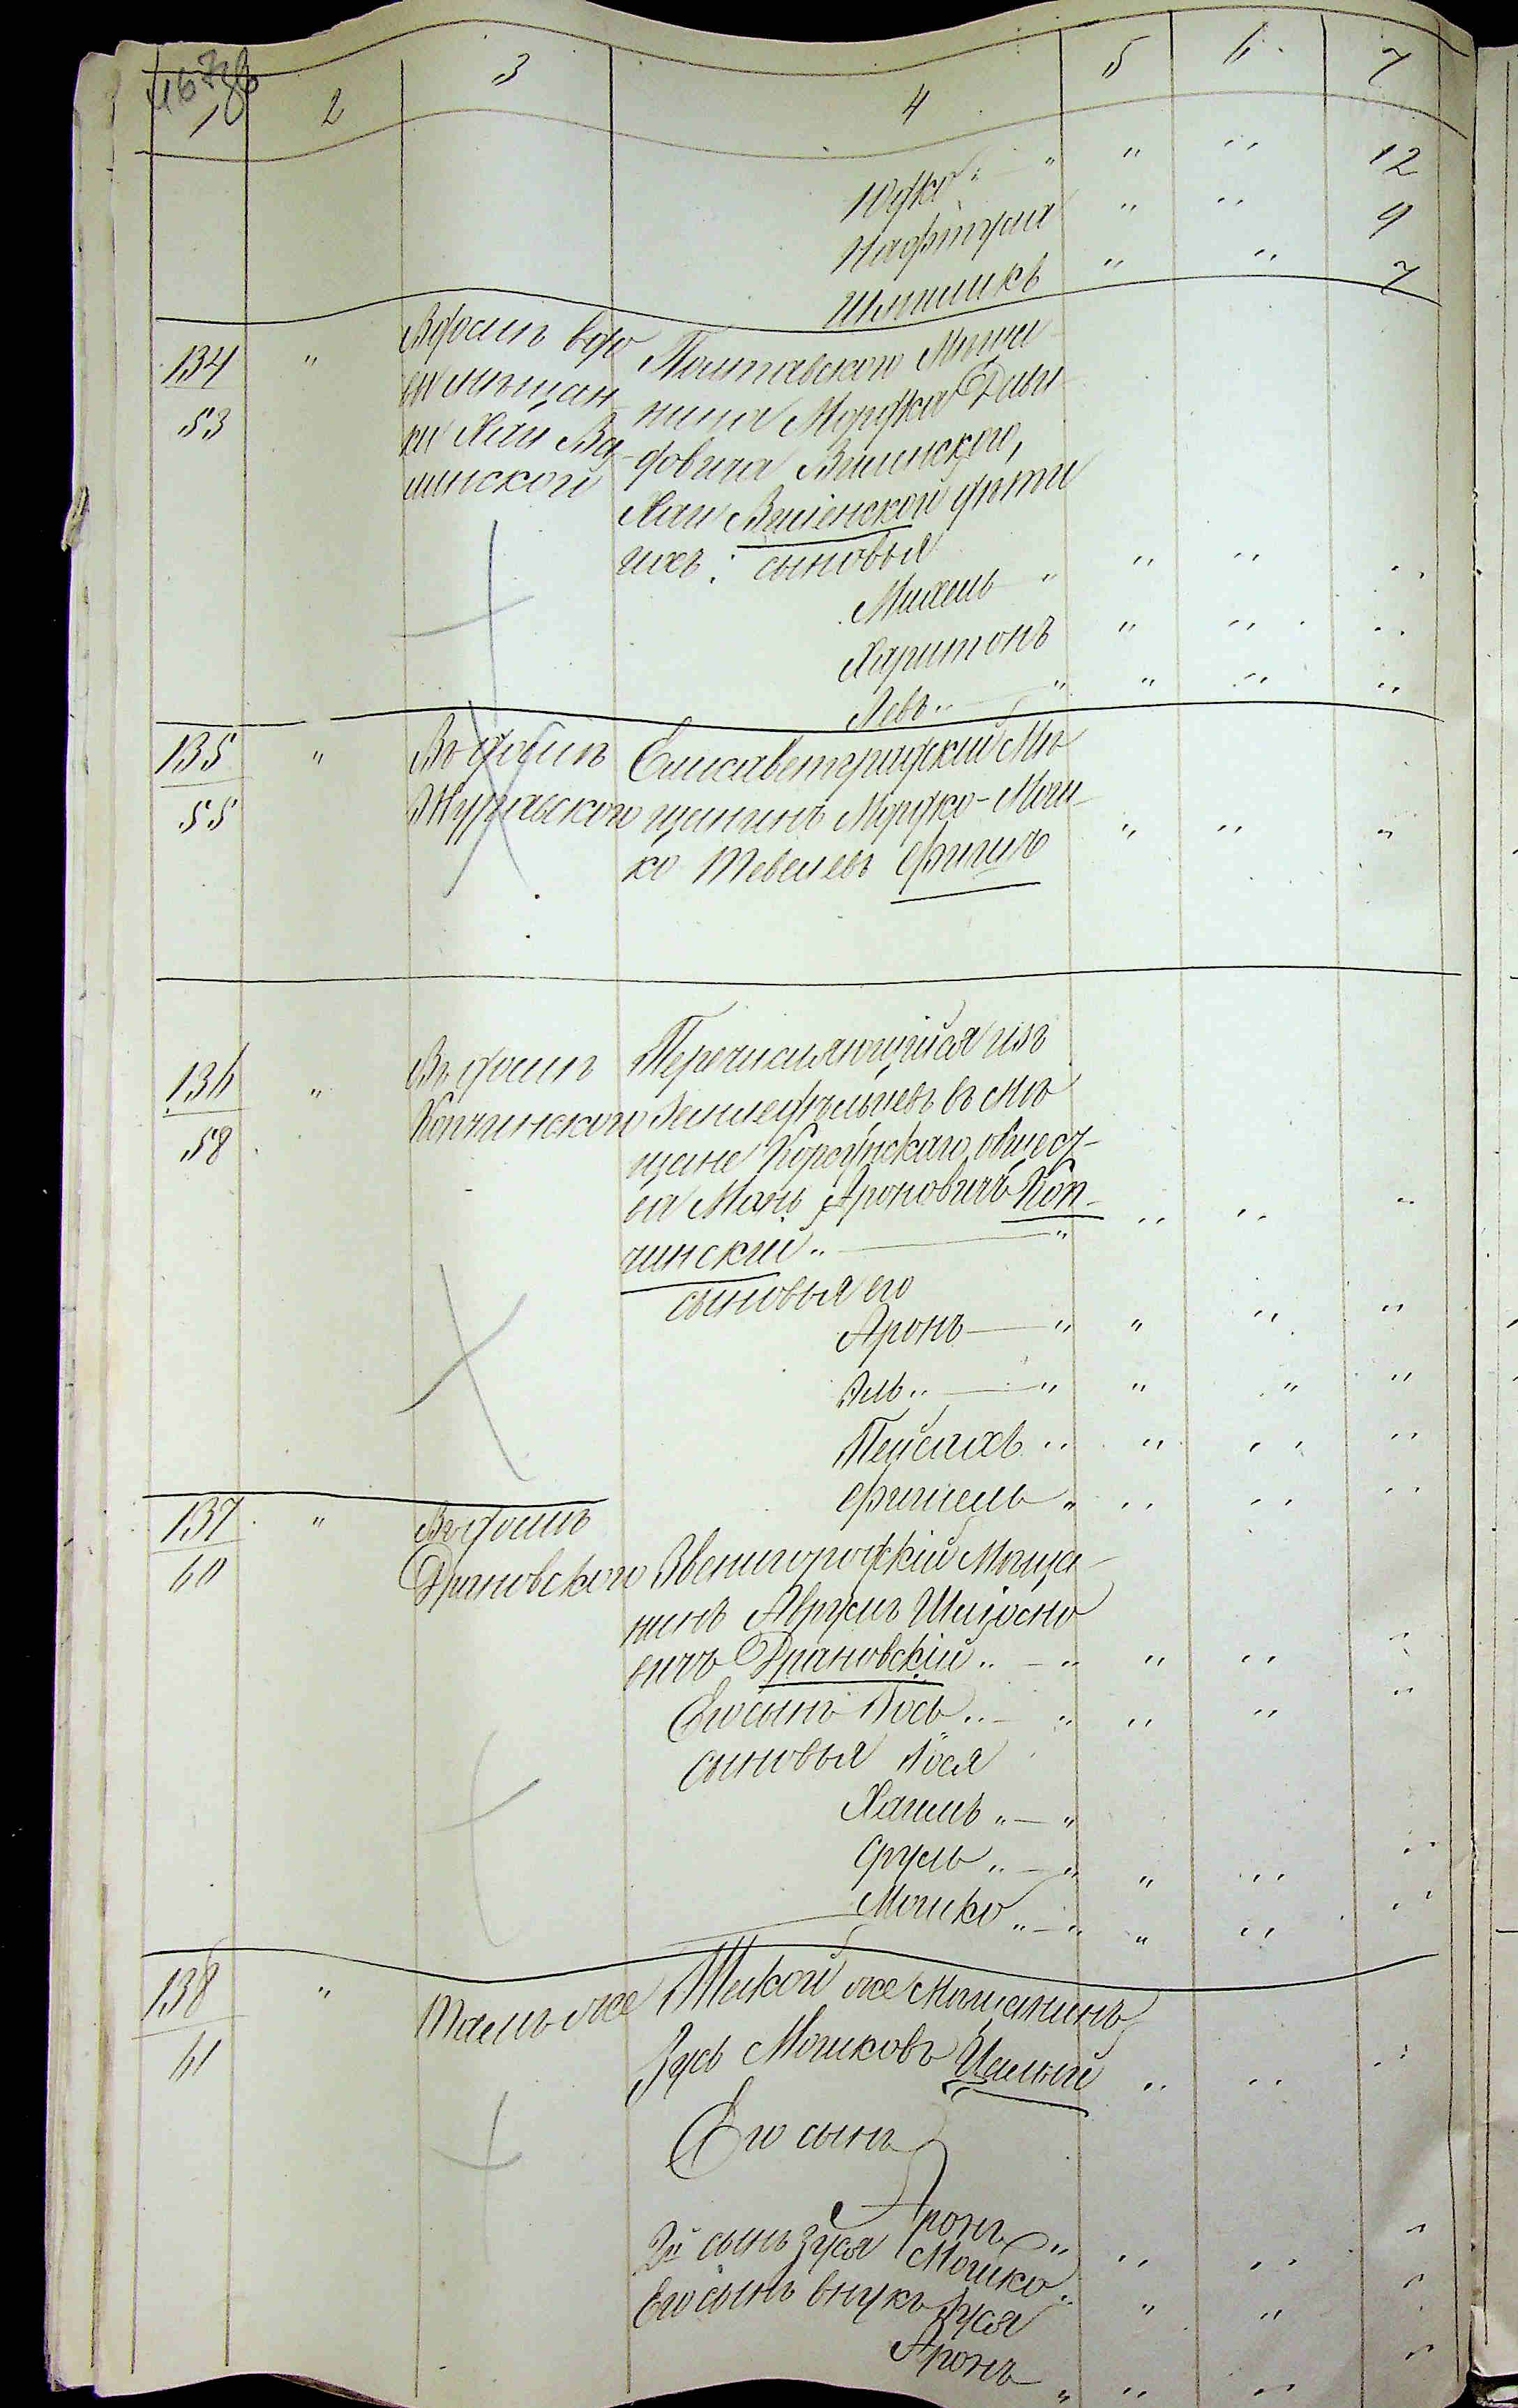 1 2 3 4 5 6 7
Юдко " " " 12
Нафтула " " 9
Шлиомкъ " " 7
134 "
53
Въ домѣ вдо
вы мѣщан-
ки Хаи Ви
шинской
Полтавского Мѣща-
нина Мордка Давы-
довича Вишенского,
Хаи Вишенской дѣти
ихъ: сыновья
Михель " " " "
Харитонъ " " "
Левъ " " " "
135 "
55
Въ домѣ
Журавского
Елисаветградскій Мѣ
щанинъ Мордко-Мош-
ко Тевелевъ Фишъ " " "
136 "
58
Въ домѣ
Копчинского
Перечисляющійся изъ
Земледѣльцевъ въ Мѣ
щане Корсунскаго общест-
ва Ароновичъ Коп-
чинскій " " " "
сыновья его
Аронъ " " " "
Эль " " " "
Пейсахъ " " " "
Фишель " " " "
137 "
60
Въ домѣ
Драновского
Звенигородскій Мѣща-
нинъ Аврумъ
вичъ Драновскій " " " "
Его сынъ Іось " " " "
сыновья Іося
Хаимъ " "
Сруль " " " "
Мошко " " " "
138 "
61
Тамъ же
Такой же Мѣщанинъ
Зусь Мошковъ " " "
Его сынъ
Аронъ " " " "
2й сынъ Зуся Мошко " " "
Его сынъ внукъ Зуся
Аронъ " " " "